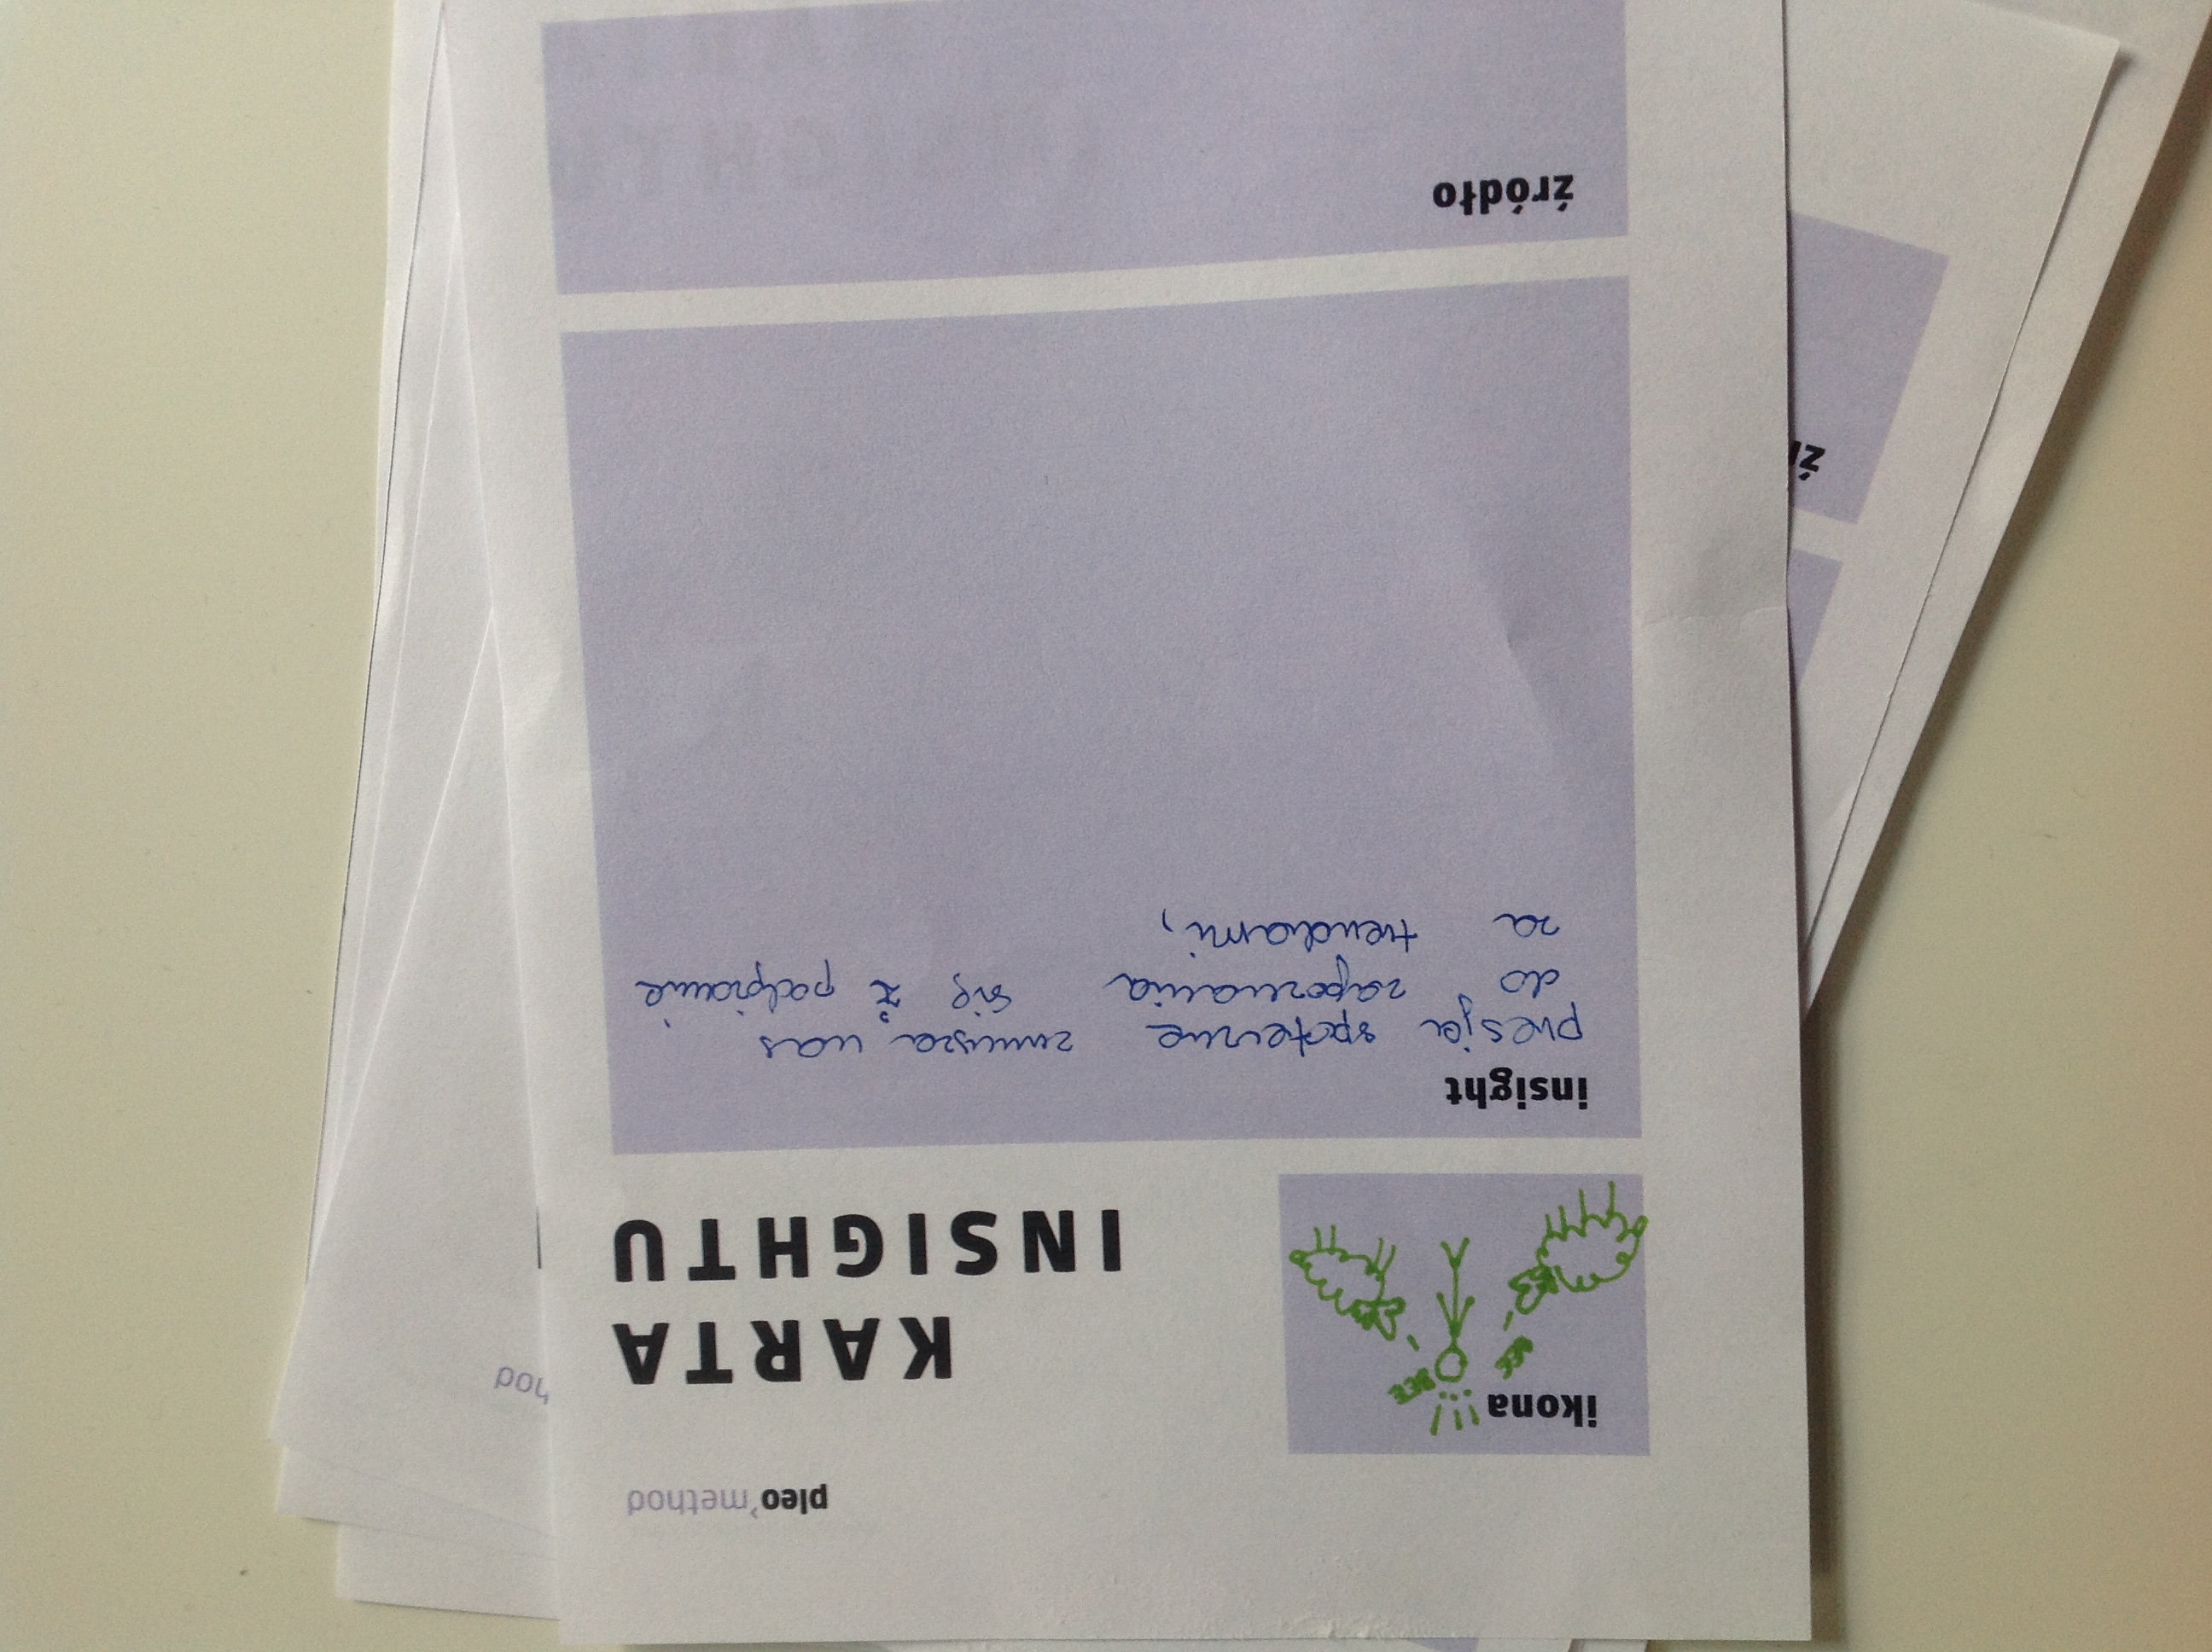 pleo'method
ikona
!!!
BEE
BEE
KARTA
INSIGHTU
hod
insight
presja społeczna zmusza nas
do zapoznania się z
za trendami,
źr
źródło